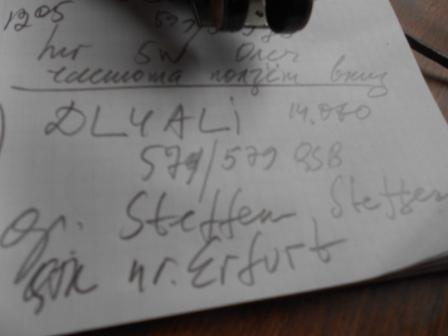 1205
hr 5W Олег
частота ползёт вниз
DL4ALi 14.060
579/579 QSB
Op. Steffen Steffen
QTH nr. Erfurt